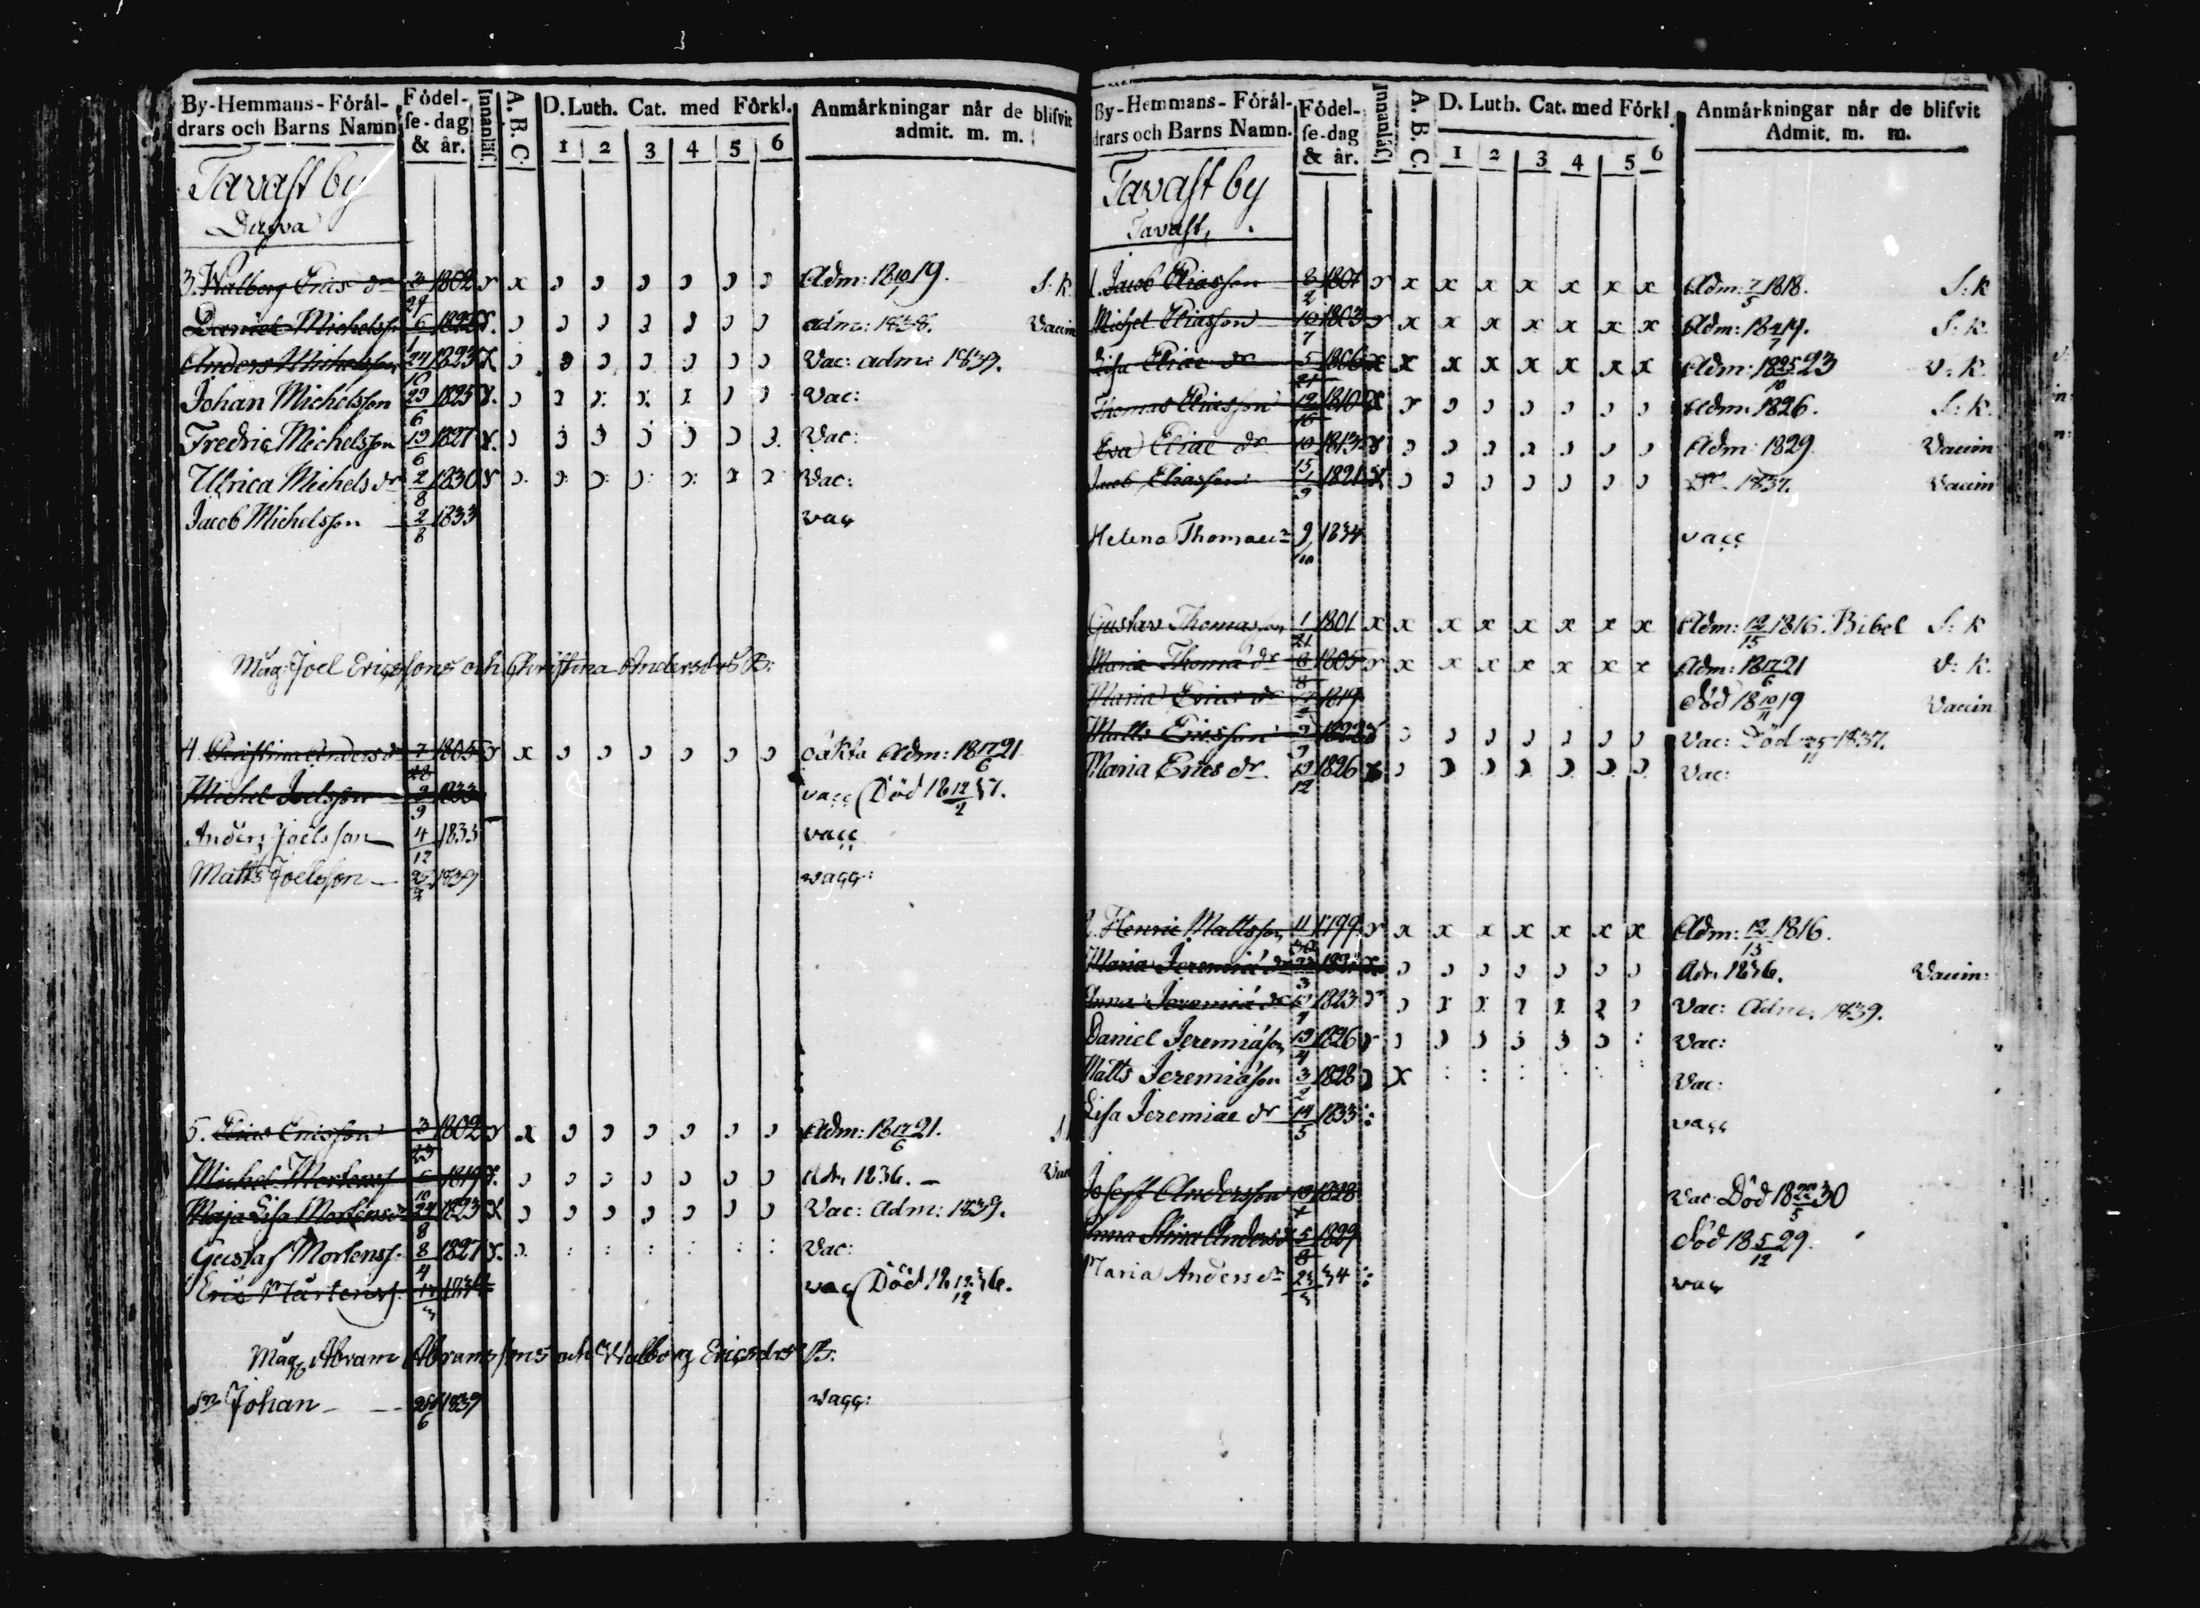 By-Hemmans-Föräl-
drars och Barns Namn
Födel-
se-dag
& år.
Innanläs.
A. B. C.
D. Luth. Cat. med Förkl.
1 2 3 4 5 6
Anmårkningar når de blifvit
admit. m. m.
Tavast by
3. Walborg Erics dr 1802 x x Adm: 18 10/7 19. S: k
Daniel Michelss 6/1 1822 adm: 1838. Vaccin
Anders Michelsson 24/10 1823 Vac: adm: 1839.
Johan Michelsson 29/6 1825 Vac:
Fredric Michelsson 19/6 1827 Vac:
Ulrica Michels dr 2/8 1830 Vac:
Jacob Michelsson 2/6 1833 vac
Måg: Joel Ericssons och Christina Andersdrs B:
4. Christina Anders dr 7/28 1805 x oäkta Adm: 18 17/6 21
Michel Joelsson 9/9 1833 vacc Död 18 12/2 37.
Anders Joelsson 4/12 1835 vacc
Matts Joelsson 25/2 1839 vacc:
5. Elias Ericsson 3/23 1802 x Adm: 18 17/6 21.
Michel Mortenss 1819 Adm 1836.
Maja Lisa Mortens dr 24/8 1823 Vac: Adm: 1839.
Gustaf Mortenss. 8/4 1827 Vac:
Eric Mårtenss. 1834 vac Död 18 12/12 36.
Måg Abram Abramssons och Walborg Ericsdrs B:
Sn Johan 28/6 1839 vacc:
By-Hemmans-Förål-
drars och Barns Namn.
Födel-
se-dag
& år.
Innanläs.
A. B. C.
D. Luth. Cat. med Förkl.
1 2 3 4 5 6
Anmårkningar når de blifvit
Admit. m. m.
Tavast by
Tavast.
1. Jacob Eliasson 8/2 1801 x x x x x x x Adm: 7/5 1818. S: k
Michel Eliasson 10/7 1803 x x x x x x x Adm: 19. S: k.
Lisa Eliae dr 5/21 1806 x x x x x x x x Adm: 18 25/10 23 v: k.
Thomas Eliasson 12/16 1810 Adm. 1826. S: k.
Eva Eliae dr 10/15 1813 Adm: 1829. Vaccin
Jacob Eliasson 1/9 1821 Dr 1837. Vaccin
Helena Thomae dr 9/10 1834 vacc
Gustav Thomasson 1/21 1801 x x x x x x x x Adm: 12/15 1816. Bibel S: k
Maria Thomæ dr 8/8 1805 x x x x x x x Adm: 18 17/6 21 v: k.
Maria Erics dr 1819 död 18 10/11 19 Vaccin
Matts Ericsson 9/7 1822 Vac: Död 25/11 1837.
Maria Erics dr 19/12 1826 Vac:
2. Henric Mattsson 11/30 1799 x x x x x x x Adm: 12/15 1816.
Maria Jeremiæ dr 23/3 1821 Adm 1836. Vaccin:
Anna Jeremiæ dr 1823 Vac: Adm. 1839.
Daniel Jeremiæson 19/4 1826 Vac:
Matts Jeremiæson 3/2 1828 x Vac:
Lisa Jeremiae dr 14/5 1833 vacc
Joseff Andersson 1828 Vac: Död 18 22/5 30
Anna Stina Anders dr 5/8 1829 död 18 5/12 29.
Maria Anders dr 23/3 34 vac